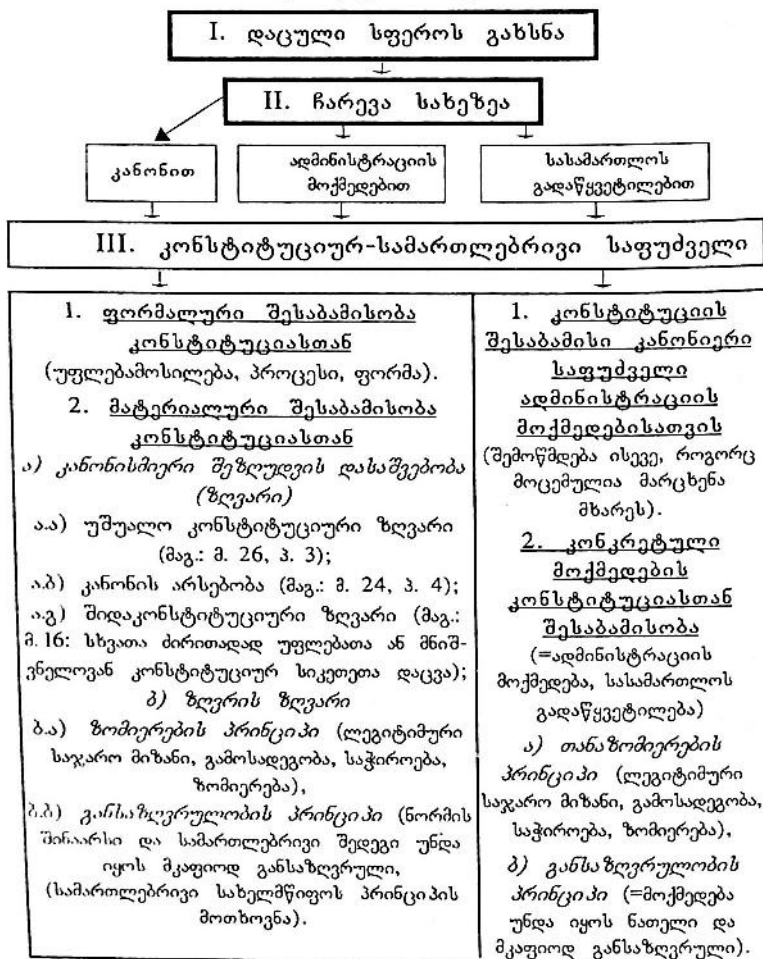 I. დაცული სფეროს გახსნა
II. ჩარევა სახეზეა
კანონით
ადმინისტრაციის
მოქმედებით
სასამართლოს
გადაწყვეტილებით
III. კონსტიტუციურ-სამართლებრივი საფუძველი
1. ფორმალური შესაბამისობა
კონსტიტუციასთან
(უფლებამოსილება, პროცესი, ფორმა).
2. მატერიალური შესაბამისობა
კონსტიტუციასთან
ა) კანონისმიერი შეზღუდვის დასაშვებობა
(ზღვარი)
ა.ა) უშუალო კონსტიტუციური ზღვარი
(მაგ.: მ. 26, პ. 3);
ა.ბ) კანონის არსებობა (მაგ.: მ. 24, პ. 4);
ა.გ) შიდაკონსტიტუციური ზღვარი (მაგ.:
მ. 16: სხვათა ძირითადად უფლებათა ან მნიშ-
ვნელოვან კონსტიტუციურ სიკეთეთა დაცვა);
ბ) ზღვრის ზღვარი
ბ.ა) ზომიერების პრინციპი (ლეგიტიმური
საჯარო მიზანი, გამოსადეგობა, საჭიროება,
ზომიერება),
ბ.ბ) განსაზღვრულობის პრინციპი (ნორმის
შინაარსი და სამართლებრივი შედეგი უნდა
იყოს მკაფიოდ განსაზღვრული,
(სამართლებრივი სახელმწიფოს პრინციპის
მოთხოვნა).
1. კონსტიტუციის
შესაბამისი კანონიერი
საფუძველი
ადმინისტრაციის
მოქმედებისათვის
(შემოწმდება ისევე, როგორც
მოცემულია მარცხენა
მხარეს).
2. კონკრეტული
მოქმედების
კონსტიტუციასთან
შესაბამისობა
(=ადმინისტრაციის
მოქმედება, სასამართლოს
გადაწყვეტილება)
ა) თანაზომიერების
პრინციპი (ლეგიტიმური
საჯარო მიზანი, გამოსადეგობა,
საჭიროება, ზომიერება),
ბ) განსაზღვრულობის
პრინციპი (=მოქმედება
უნდა იყოს ნათელი და
მკაფიოდ განსაზღვრული).